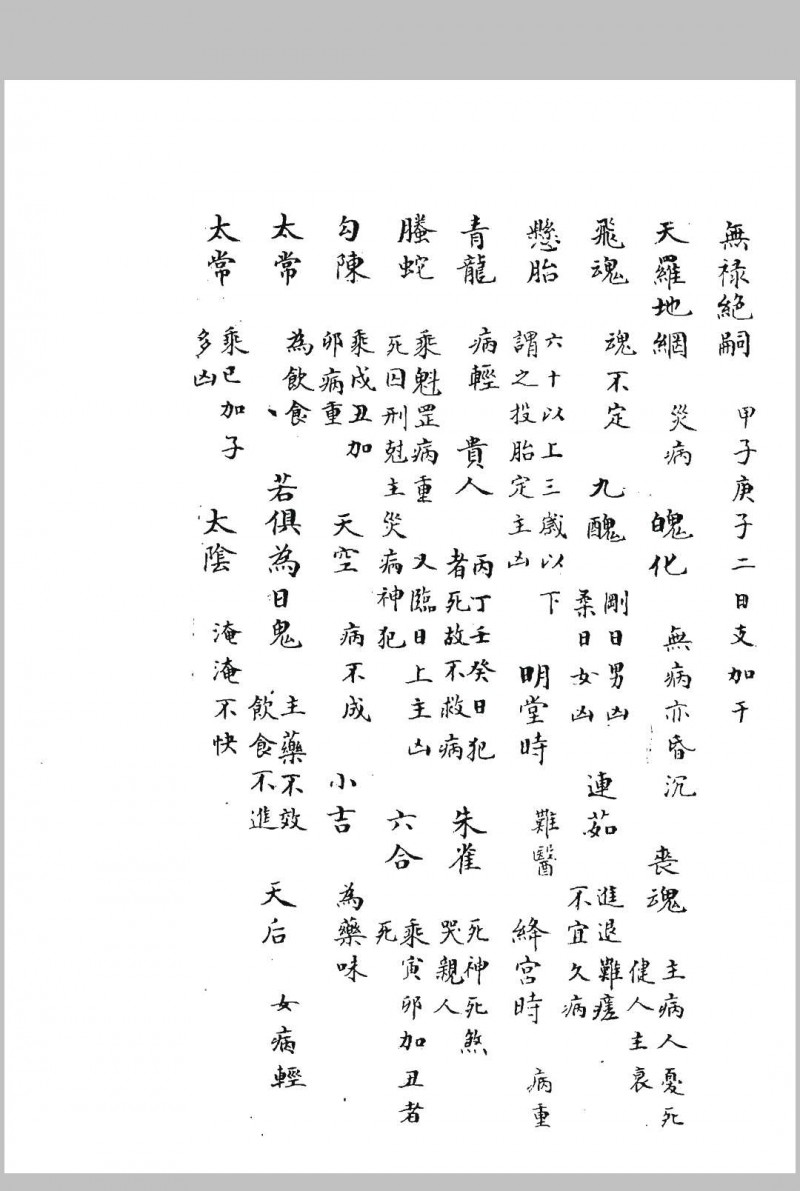 無祿絕嗣 甲子庚子二日支加干
天羅地網 災病 魄化 無病亦昏沉 喪魂 主病人憂死健人主衰
飛魂 魂不定 九醜 剛日男凶柔日女凶 連茹 進退難瘥不宜久病
懸胎 六十以上三歲以下謂之投胎定主凶 明堂時 難醫 絳宮時 病重
青龍 病輕 貴人 丙丁壬癸日犯者死故不救病 朱雀 死神死煞哭親人
螣蛇 乘魁罡病重又臨日上主凶死囚刑尅主災病神犯 六合 乘寅卯加丑者死
勾陳 乘戌丑加卯病重 天空 病不成 小吉 為藥味
太常 為飲食 若俱為日鬼 主藥不效飲食不進 天后 女病輕
太常 乘巳加子多凶 太陰 淹淹不快